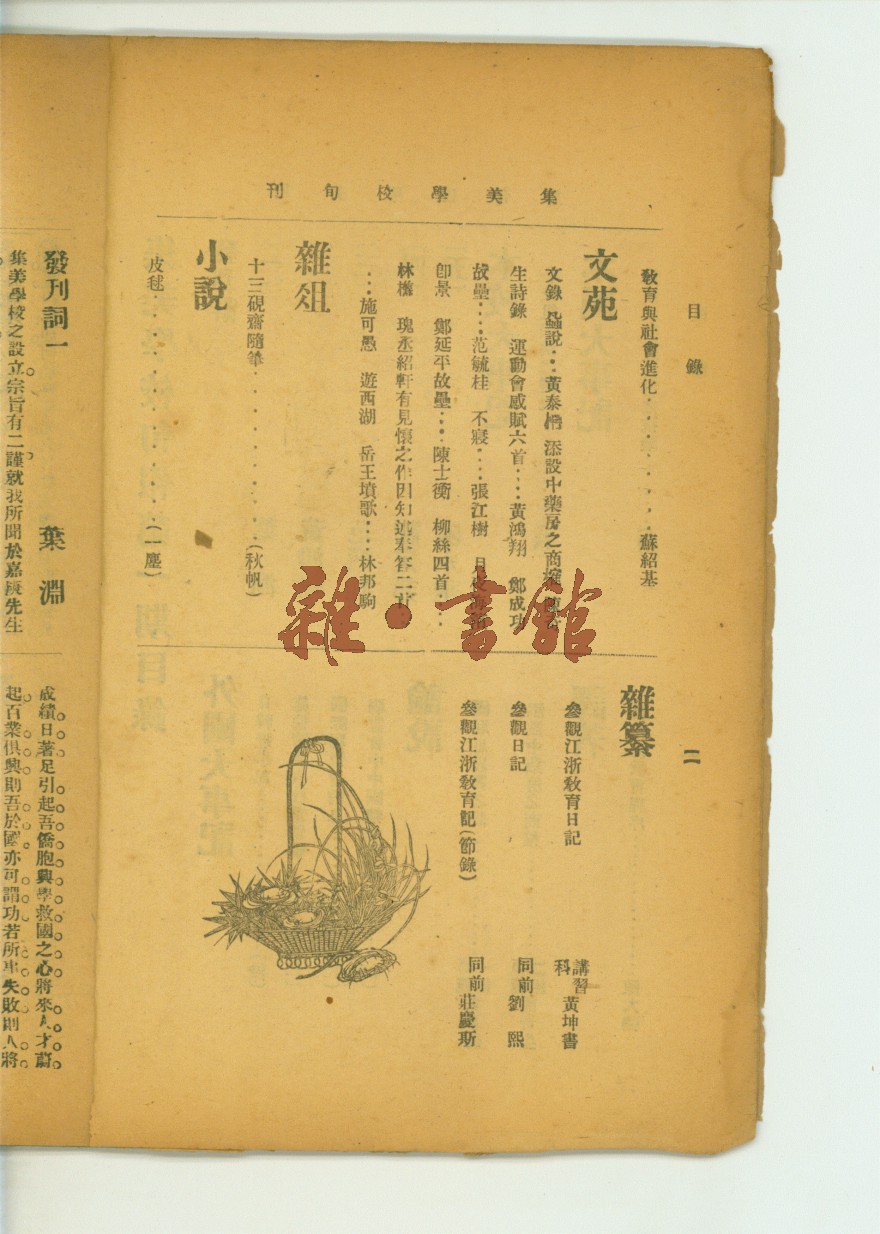 集美學校旬刊
目錄
二
教育與社會進化・・・・・・・蘇紹基
文苑
文錄 蝨說・・・黃泰 添設中藥房之商榷
生詩錄 運動會感賦六首・・・・黃鴻翔 鄭成功
故壘・・・・范毓桂 不寢・・・・張江樹 月夜
卽景 鄭延平故壘・・・・陳士衡 柳絲四首・・・
林檻 瑰丞紹軒有見懷之作因知述奉答二首
・・・施可愚 遊西湖 岳王墳歌・・・・林邦駒
雜俎
十三硯齋隨筆・・・・・・・・・(秋帆)
小說
皮毬・・・・・・・・・・・・(一塵)
雜纂
參觀江浙敎育日記 講習科 黃坤書
參觀日記 同前 劉熙
參觀江浙敎育記(節錄) 同前 莊慶斯
雜・書館
發刊詞一 葉淵
集美學校之設立。宗旨有二。謹就我所聞於嘉庚先生
成績日著足引起吾僑胞興學救國之心將來人才蔚
起百業俱興則吾於國亦可謂功若所事失敗則人將